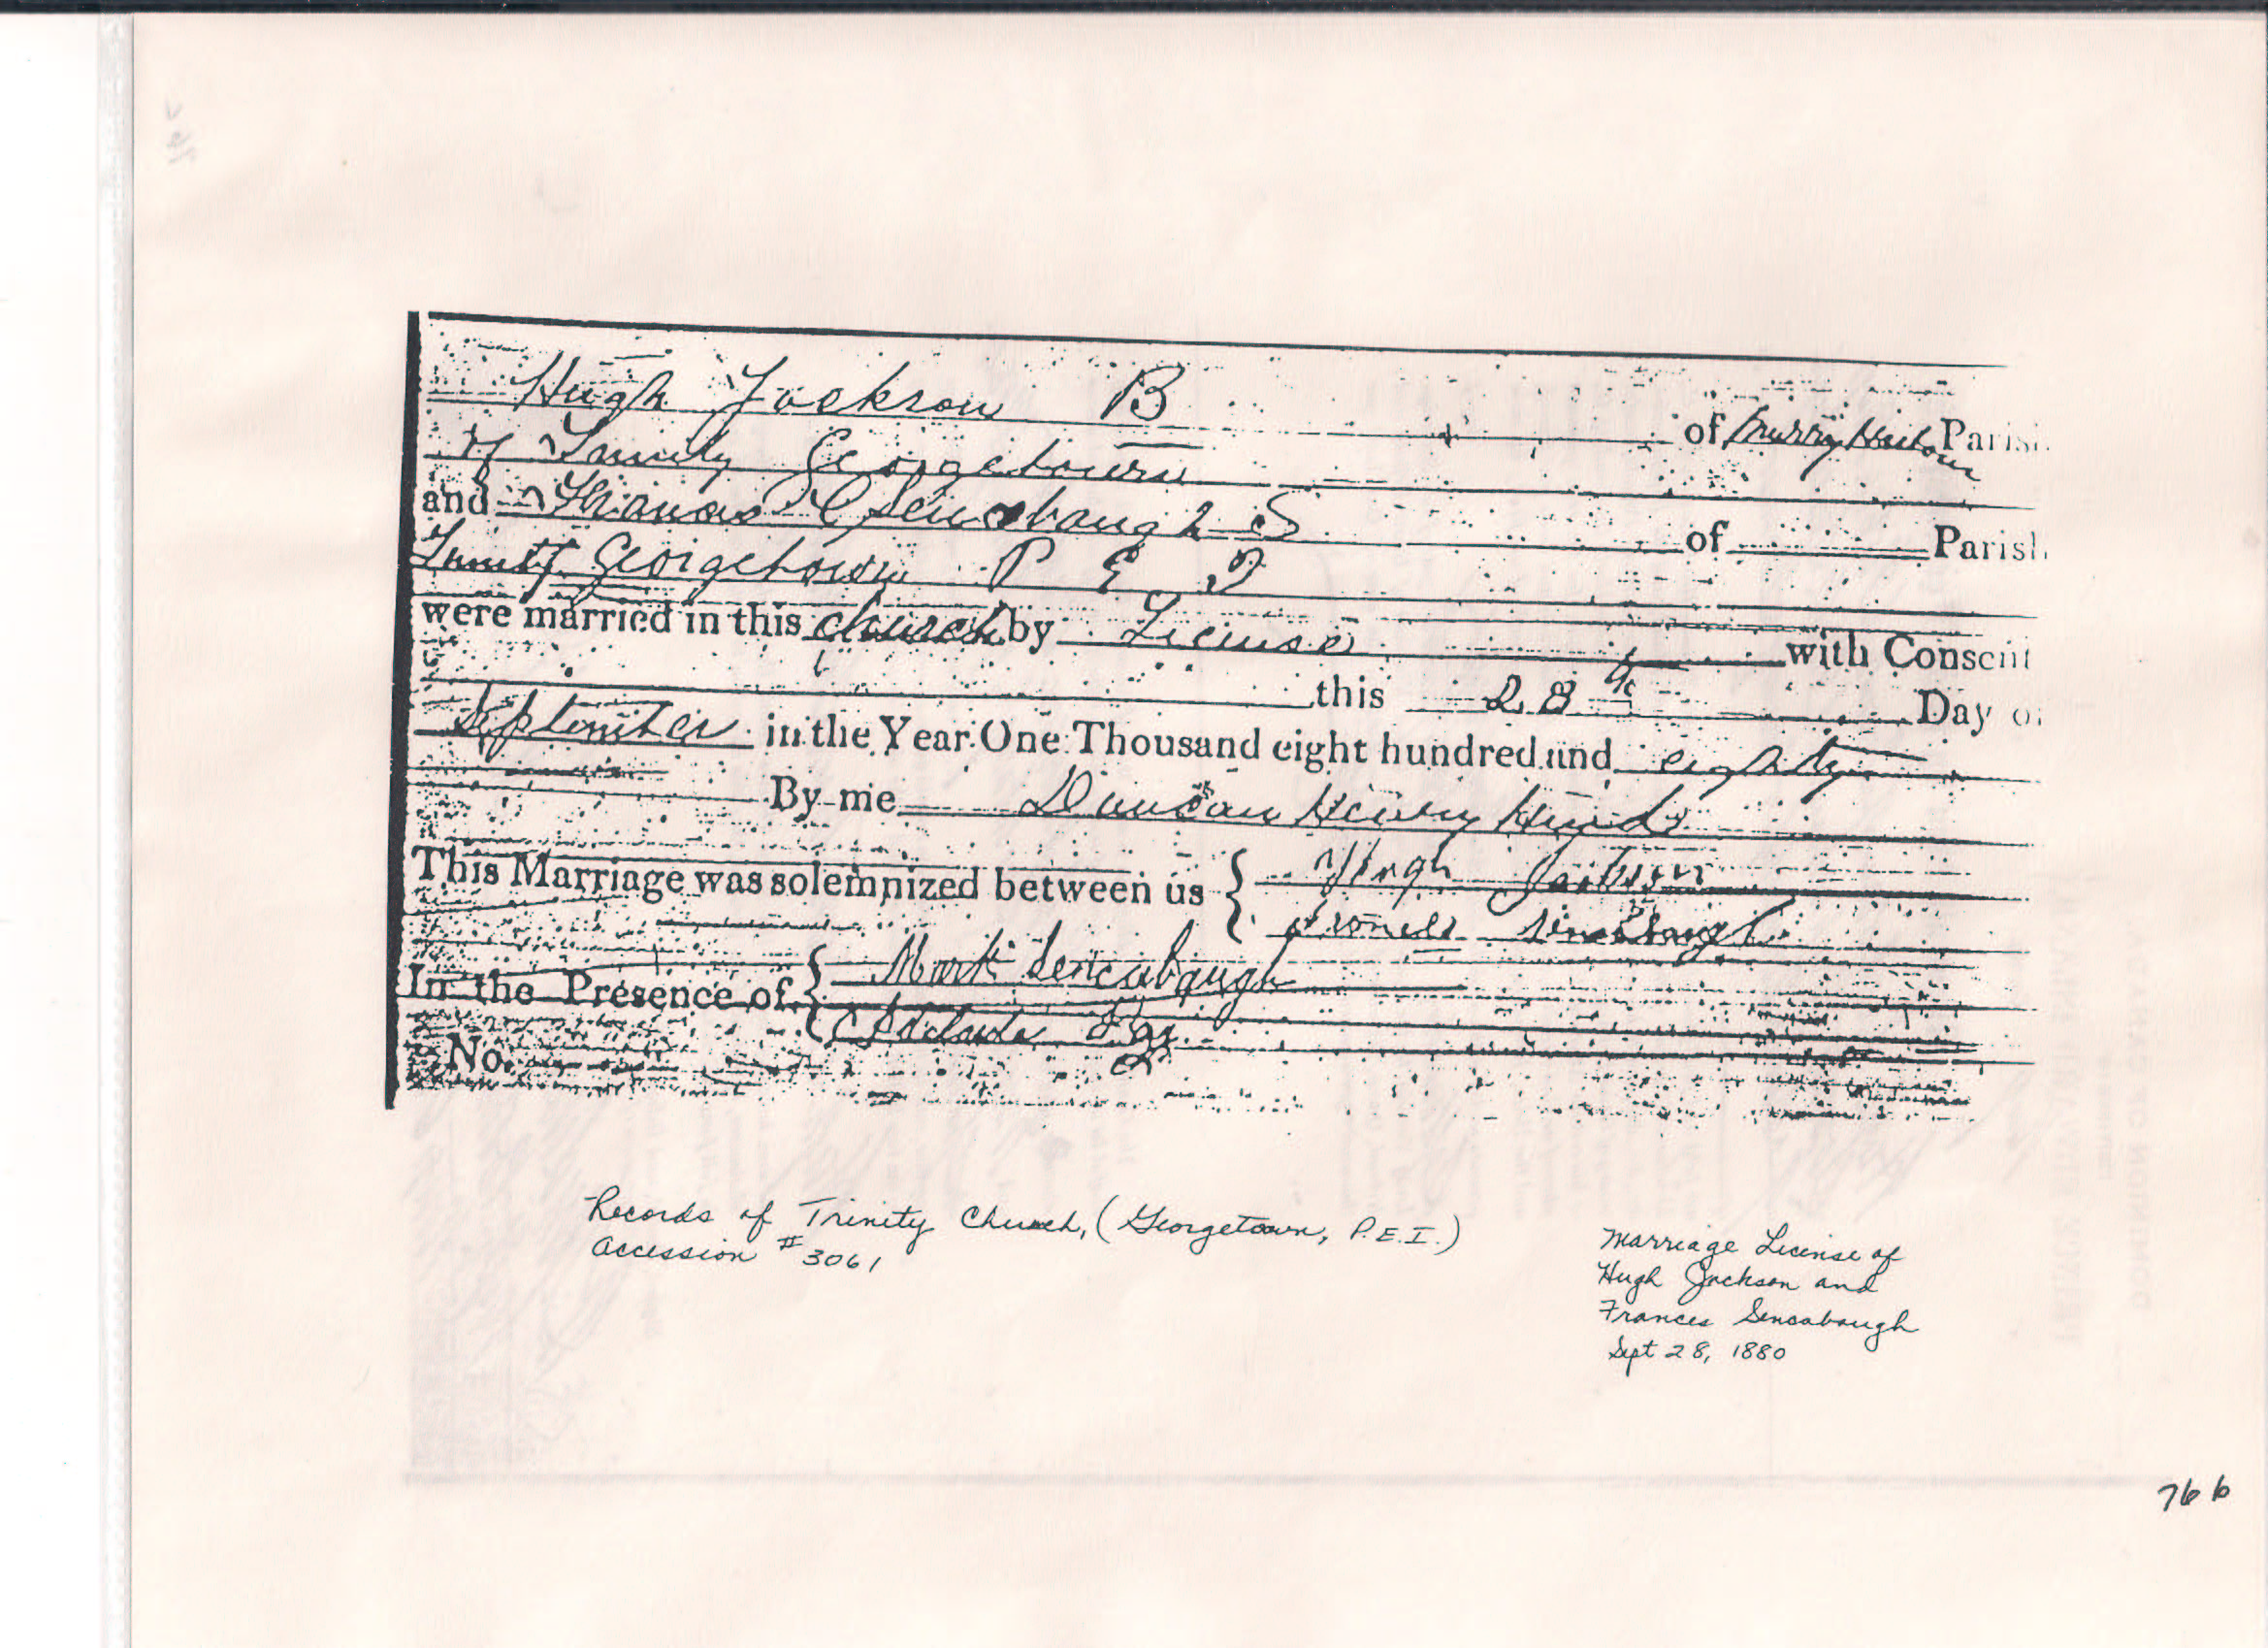 Hugh Jackson B of Murry Harbour Parish
of Trinity Georgetown
and Frances Sencabaugh S of Parish
Trinity Georgetown P E I
were married in this church by License with Consent
this 28th Day of
September in the Year One Thousand eight hundred and eighty
By me Duncan Henry Hind
This Marriage was solemnized between us { Hugh Jackson
Frances Sencabaugh
In the Presence of { Mark Sencabaugh
Adelaide
No.
Records of Trinity Church, (Georgetown, P.E.I.)
Accession # 3061
Marriage License of
Hugh Jackson and
Frances Sencabaugh
Sept 28, 1880
766